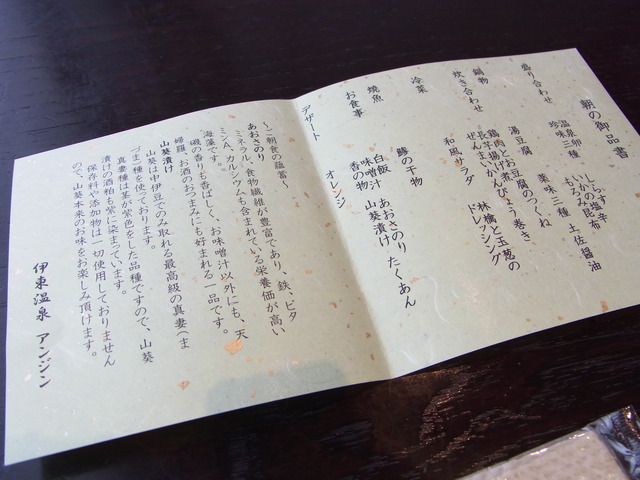 朝の御品書
盛り合わせ
温泉卵
珍味三種
しらす塩辛
いかみの昆布
もろみ
薬味三種 土佐醤油
鍋物
湯豆腐
炊き合わせ
鶏肉とお豆腐のつくね
長芋揚げかんぴょう巻き
ぜんまい
冷菜
和風サラダ
林檎と玉葱の
ドレッシング
焼魚
鯵の干物
お食事
白飯
味噌汁 あおさのり
香の物 山葵漬け たくあん
デザート
オレンジ
〜ご朝食の薀蓄〜
あおさのり
ミネラル、食物繊維が豊富であり、鉄、ビタ
ミンA、カルシウムも含まれている栄養価が高い
海藻です。
磯の香りも香ばしく、お味噌汁以外にも、天
婦羅、お酒のおつまみにも好まれる一品です。
山葵漬け
山葵は中伊豆でのみ取れる最高級の真妻(ま
づま)種を使っております。
真妻種は茎が紫色をした品種ですので、山葵
漬けの酒粕も紫に染まっています。
保存料や添加物は一切使用しておりません
ので、山葵本来のお味をお楽しみ頂けます。
伊東温泉 アンジン